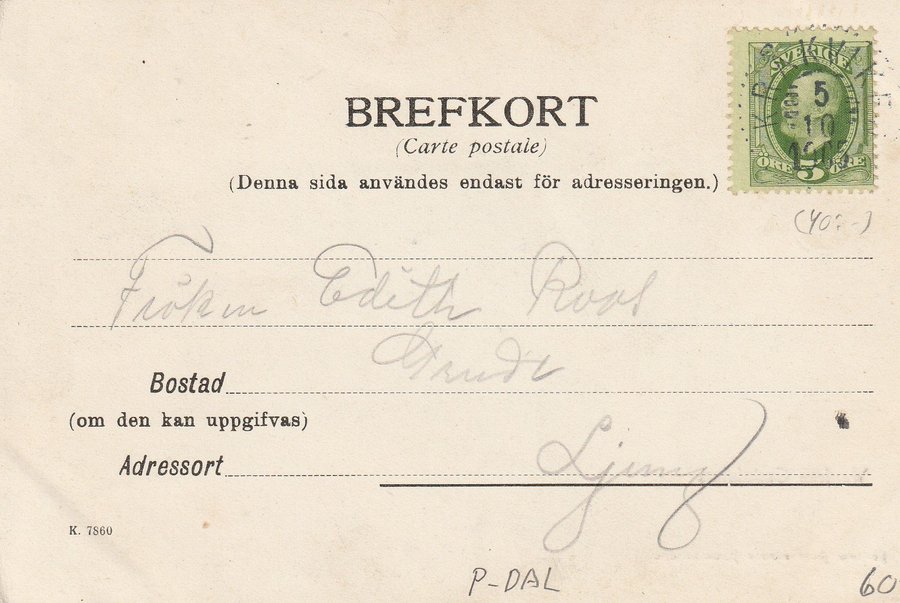 BREFKORT
(Carte postale)
(Denna sida användes endast för adresseringen.)
SVERIGE
5
10
ÖRE 5 ÖRE
(407-)
Fröken Edith Roos
Bostad
(om den kan uppgifvas)
Adressort Ljung
K. 7860
P-DAL
60